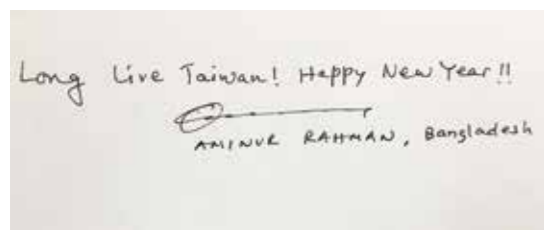 Long Live Taiwan! Happy New Year!!
AMINUR RAHMAN, Bangladesh